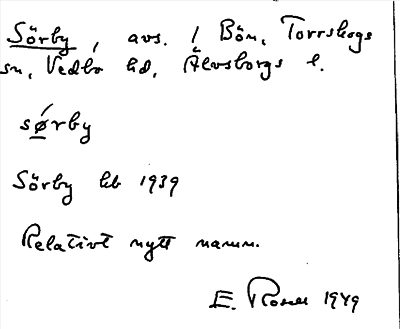 Sörby, avs. / Bön, Torrskogs
sn, Vedbo hd, Älvsborgs l.
sǿ̱rby
Sörby kb 1939
Relativt nytt namn.
E. Rosell 1949